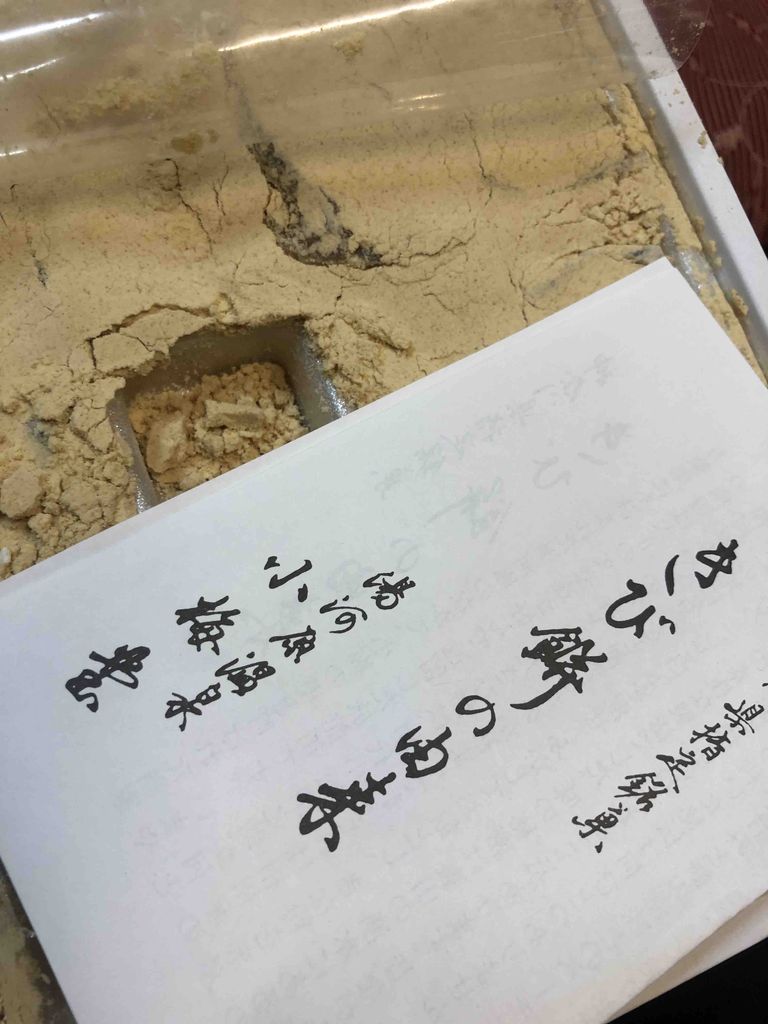 県指定銘菓
きび餅の由来
湯河原温泉
小梅堂